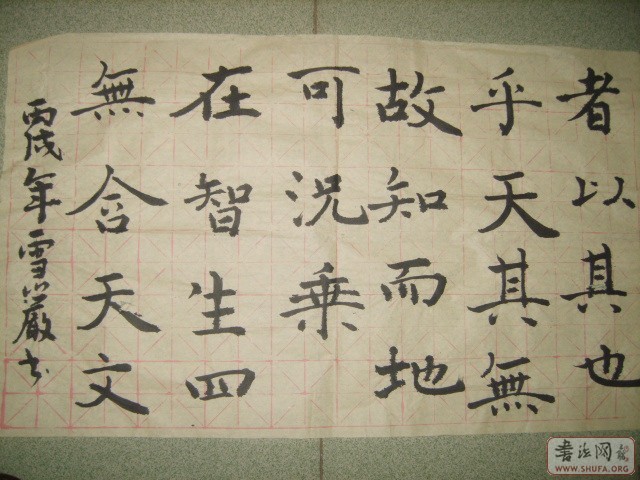 者以其也
乎天其無
故知而地
可況乗
在智生四
無含天文
丙戌年雪巖书
書法网
WWW.SHUFA.ORG